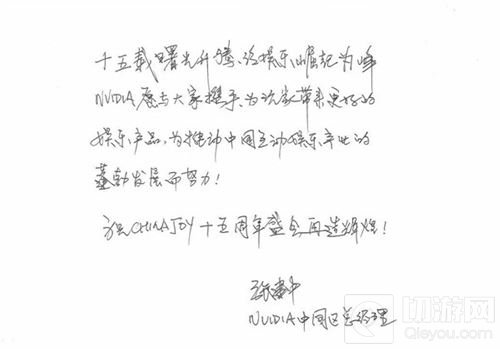 十五载曙光升腾，泛娱乐崛起为峰
NVIDIA愿与大家携手，为玩家带来更好的
娱乐产品，为推动中国互动娱乐产业的
蓬勃发展而努力！
祝CHINAJOY十五周年盛会再造辉煌！
张建中
NVIDIA中国区总经理
切游网
Qieyou.com